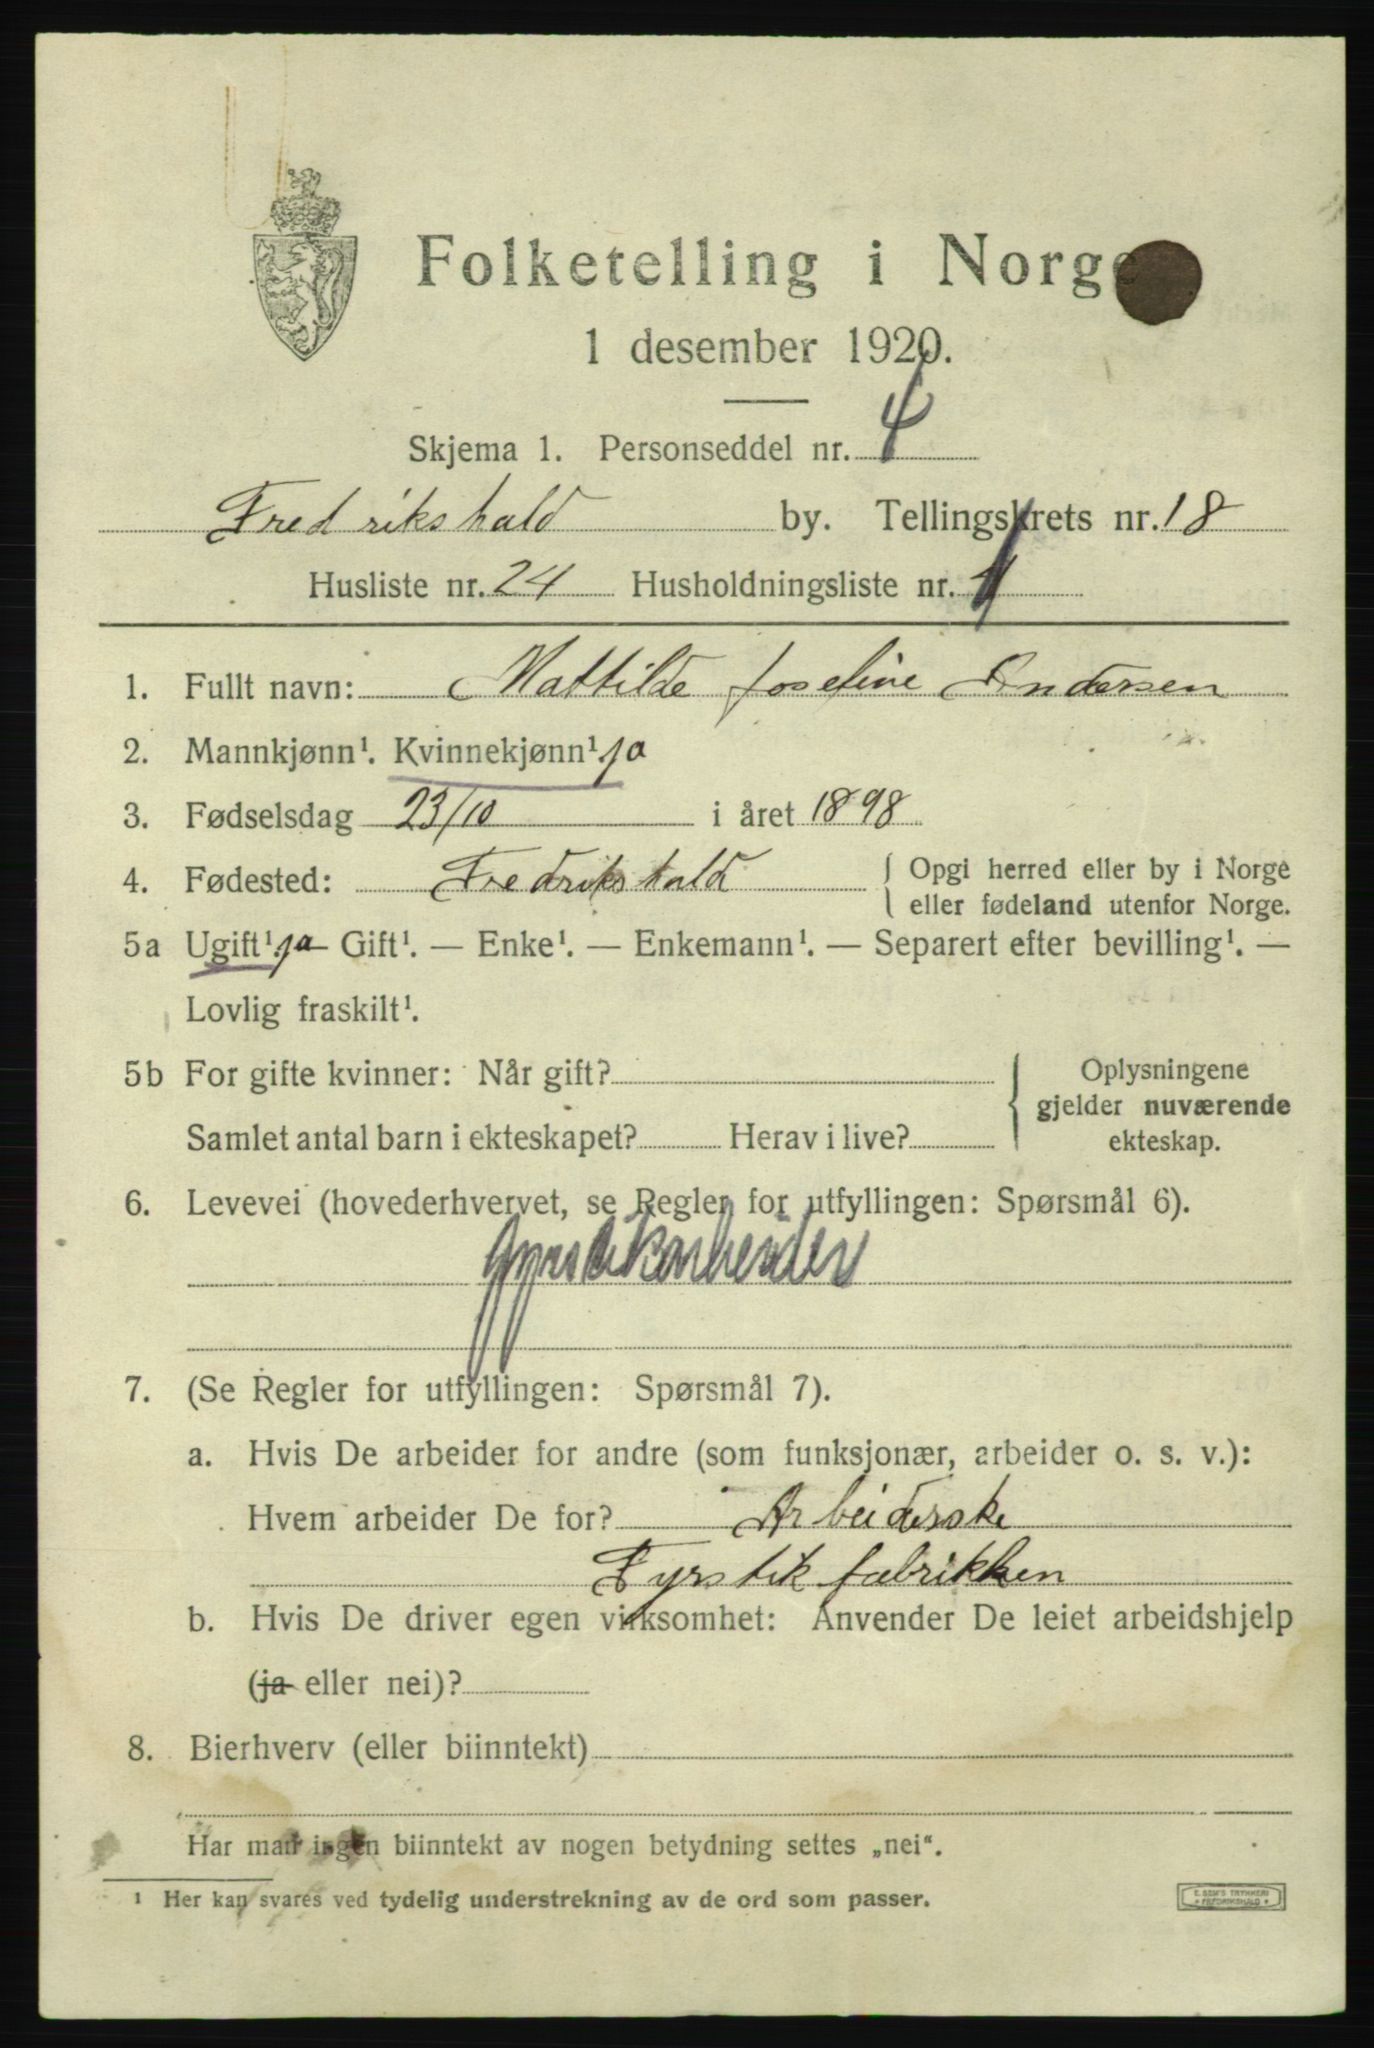 Folketelling i Norge
1 desember 1920.
Skjema 1. Personseddel nr. 4
Fredrikshald by. Tellingskrets nr. 18
Husliste nr. 24 Husholdningsliste nr. 1
1. Fullt navn: Mattilde Josefine Andersen
2. Mannkjønn¹. Kvinnekjønn¹ ja
3. Fødselsdag 23/10 i året 1898
4. Fødested: Fredrikshald { Opgi herred eller by i Norge
eller fødeland utenfor Norge.
5a Ugift¹. ja — Gift¹. — Enke¹. — Enkemann¹. — Separert efter bevilling¹. —
Lovlig fraskilt¹.
5b For gifte kvinner: Når gift? { Oplysningene
gjelder nuværende
Samlet antal barn i ekteskapet? Herav i live? ekteskap.
6. Levevei (hovederhvervet, se Regler for utfyllingen: Spørsmål 6).
7. (Se Regler for utfyllingen: Spørsmål 7).
a. Hvis De arbeider for andre (som funksjonær, arbeider o. s. v.):
Hvem arbeider De for? Arbeiderske
Fyrstikfabrikken
b. Hvis De driver egen virksomhet: Anvender De leiet arbeidshjelp
(ja eller nei)?
8. Bierhverv (eller biinntekt)
Har man ingen biinntekt av nogen betydning settes „nei“.
¹ Her kan svares ved tydelig understrekning av de ord som passer.
E. SEM'S TRYKKERI
FREDRIKSHALD